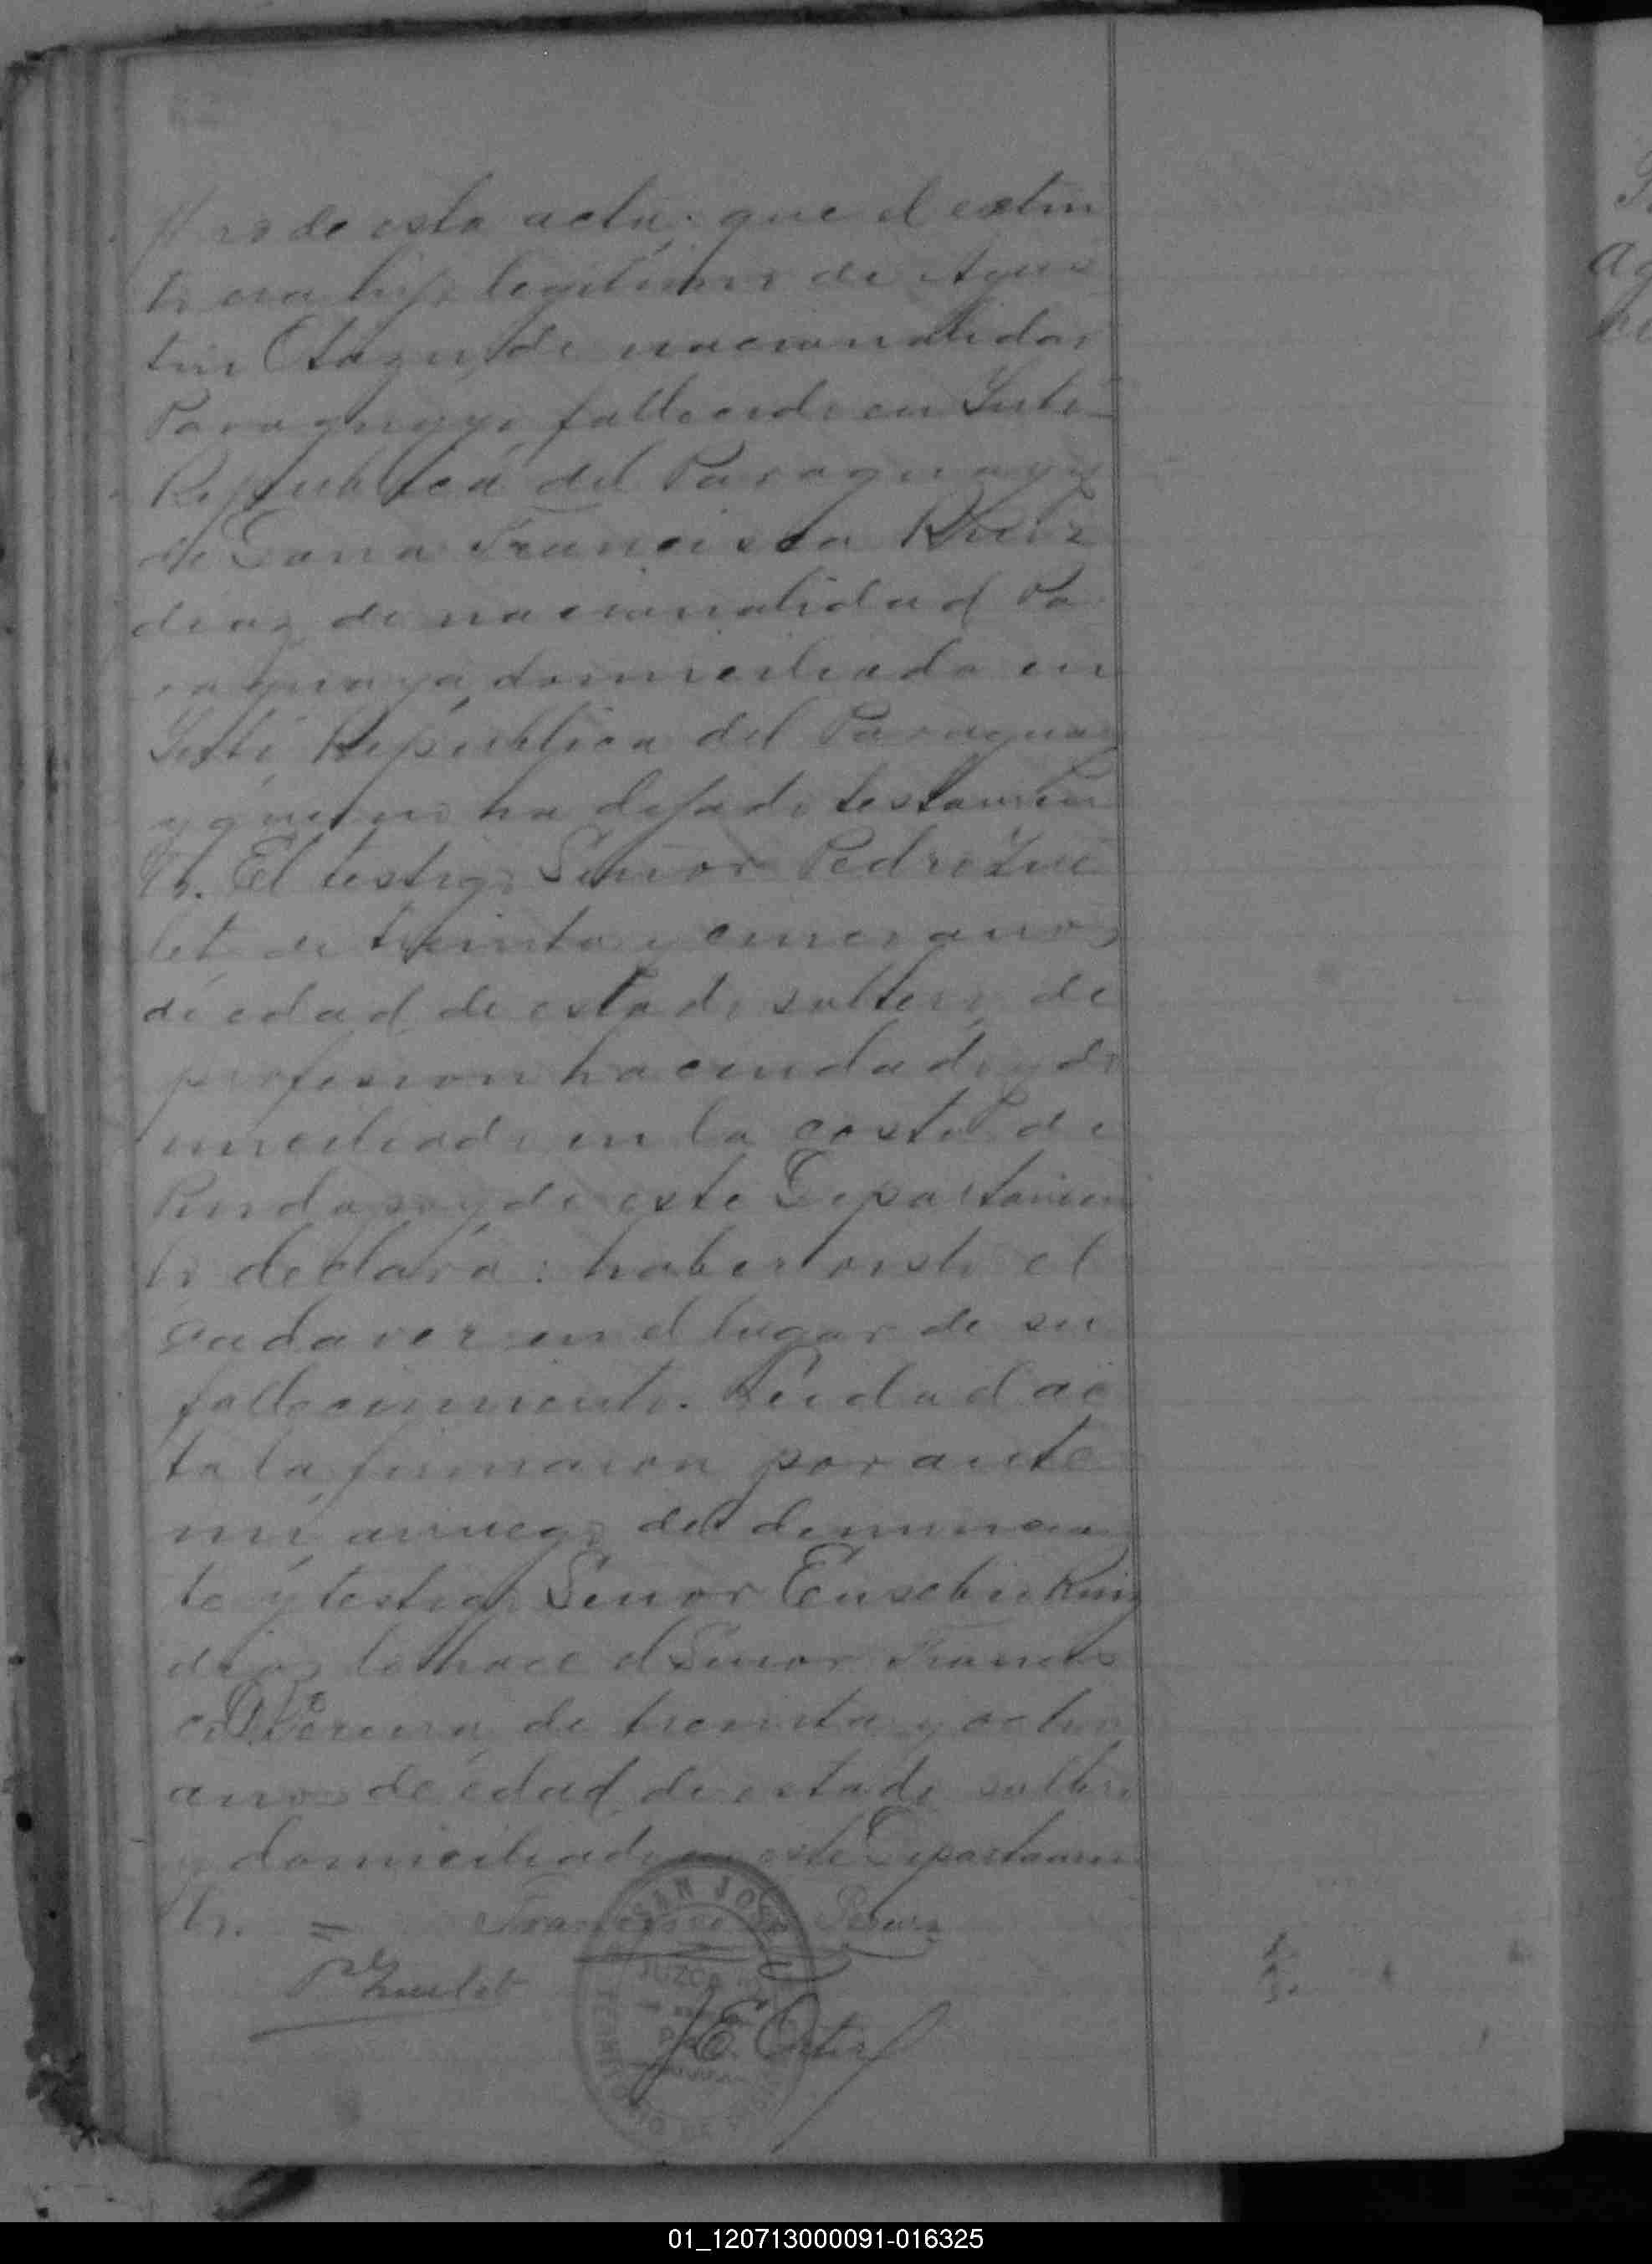 ro de esta acta: que el extin
to era hijo legitimo de Agus
tin Otazu, de nacionalidad
Paraguayo, fallecido en Yuti
Republica del Paraguay y
de Dona Francisca Ruiz
dias, de nacionalidad Pa
raguaya, domiciliada en
Yuti Republica del Paraguay
y que no ha dejado testamen
to. El testigo Señor Pedro Zue
let de treinta y cinco anos
de edad, de estado soltero, de
profesion hacendado, y do
miciliado en la costa de
Pindapoy de este Departamen
to declara: haber visto el
cadaver en el lugar de su
fallecimiento. Leida el ac
ta la firmaron por ante
mi, a ruego del denuncian
te y testigo Senor Eusebio Ruiz
dias lo hace el Senor Francis
co Pereira, de treinta y ocho
anos de edad, de estado soltero
y domiciliado en este Departamen
to. = Francisco Pereira
P. Zuelet
E. Ortiz
SAN JOSE
JUZGADO
PAZ
TERRITORIO DE
Ag
01_120713000091-016325